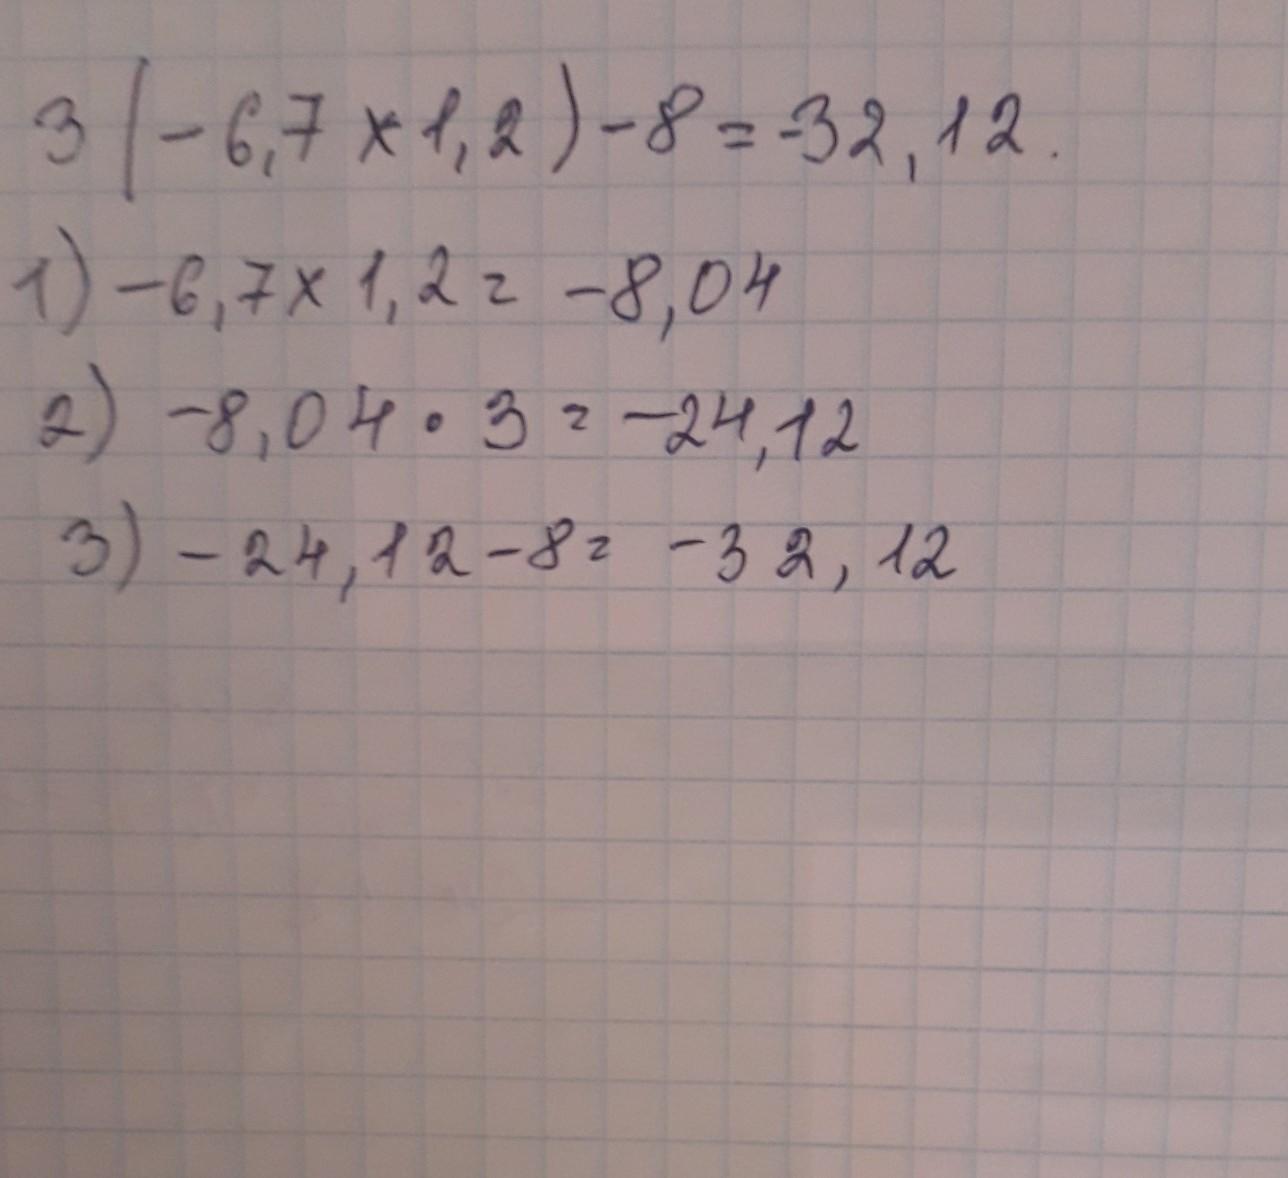 3(-6,7×1,2)-8=-32,12.
1) -6,7×1,2= -8,04
2) -8,04·3=-24,12
3) -24,12-8= -32,12